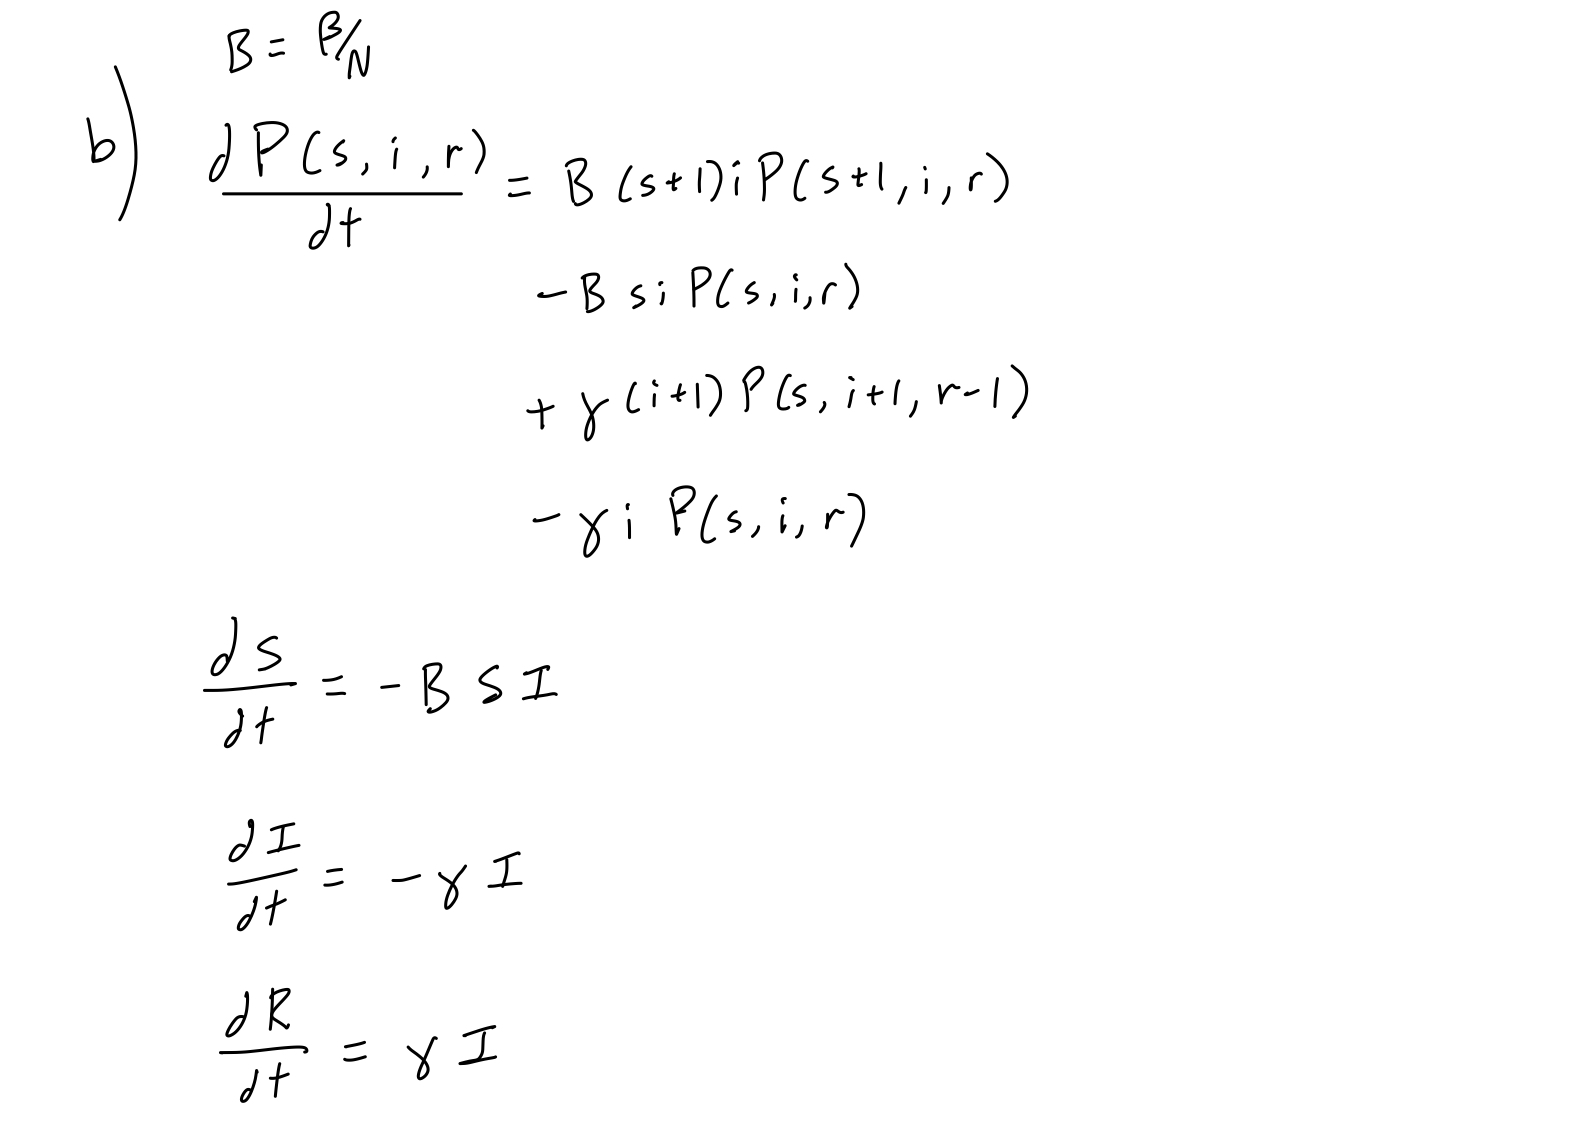 B = β/N
b) dP(s, i, r)/dt = B (s+1) i P(s+1, i, r)
- B s i P(s, i, r)
+ γ (i+1) P(s, i+1, r-1)
- γ i P(s, i, r)
dS/dt = - B S I
dI/dt = - γ I
dR/dt = γ I